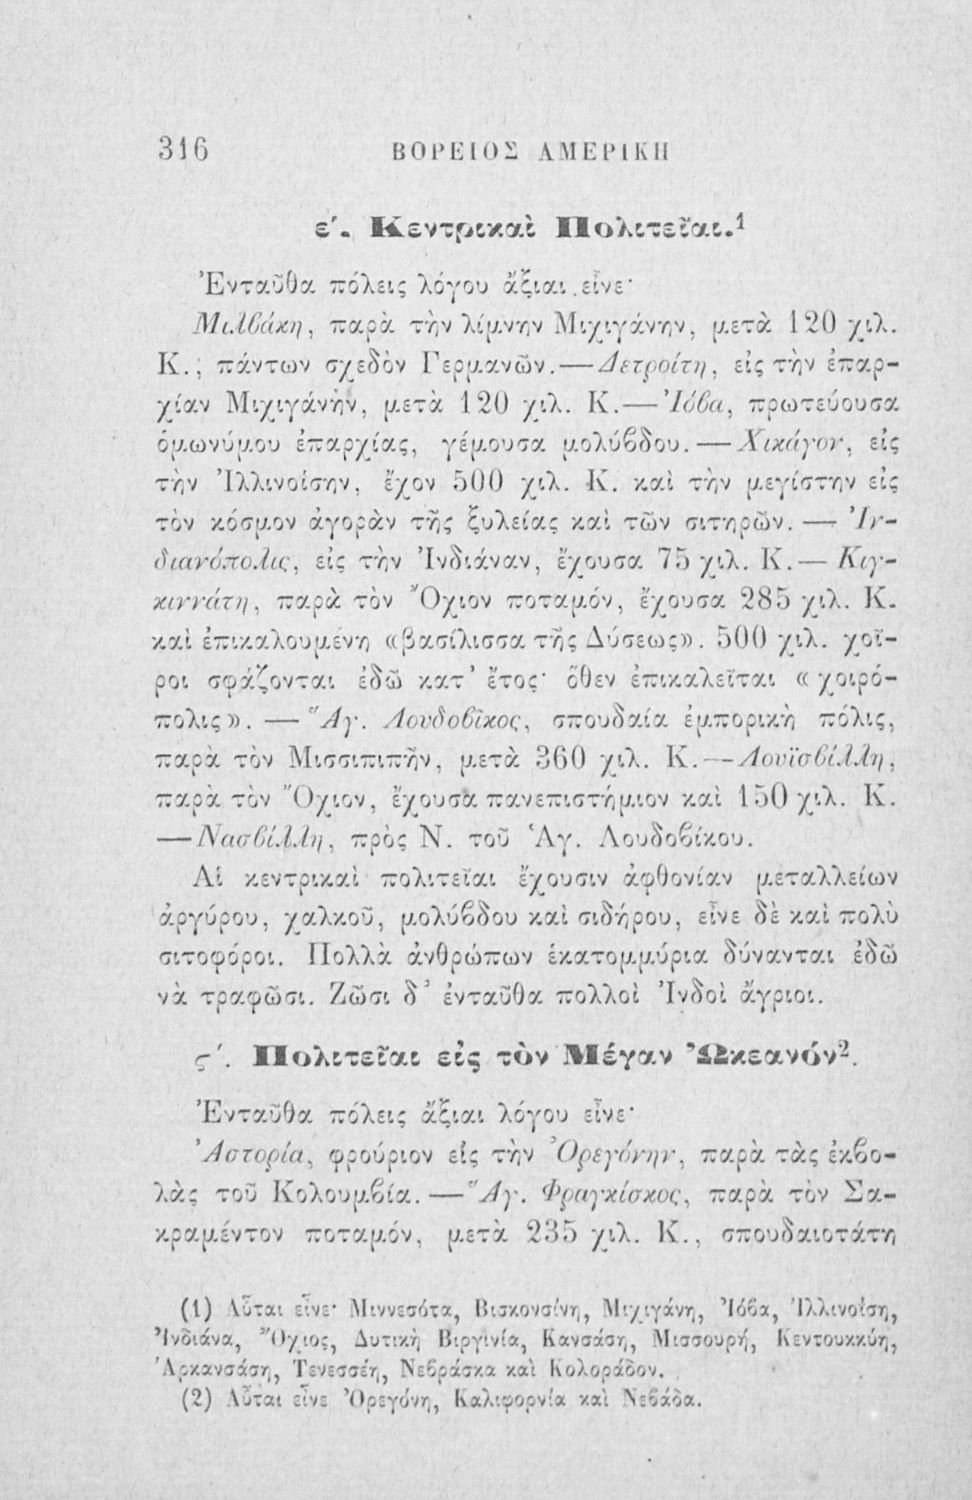 316 ΒΟΡΕΙΟΣ ΑΜΕΡΙΚΗ
ε΄. Κεντρικαὶ Πολιτεῖαι.¹
Ἐνταῦθα πόλεις λόγου ἄξιαι εἶνε·
Μιλβάκη, παρὰ τὴν λίμνην Μιχιγάνην, μετὰ 120 χιλ.
Κ.; πάντων σχεδὸν Γερμανῶν.—Δετροίτη, εἰς τὴν ἐπαρ-
χίαν Μιχιγάνην, μετὰ 120 χιλ. Κ.—Ἰόβα, πρωτεύουσα
ὁμωνύμου ἐπαρχίας, γέμουσα μολύβδου.—Χικάγον, εἰς
τὴν Ἰλλινοίσην, ἔχον 500 χιλ. Κ. καὶ τὴν μεγίστην εἰς
τὸν κόσμον ἀγορὰν τῆς ξυλείας καὶ τῶν σιτηρῶν. — Ἰν-
διανόπολις, εἰς τὴν Ἰνδιάναν, ἔχουσα 75 χιλ. Κ.— Κιγ-
κιννάτη, παρὰ τὸν Ὄχιον ποταμόν, ἔχουσα 285 χιλ. Κ.
καὶ ἐπικαλουμένη «βασίλισσα τῆς Δύσεως». 500 χιλ. χοῖ-
ροι σφάζονται ἐδῶ κατ' ἔτος· ὅθεν ἐπικαλεῖται «χοιρό-
πολις». — Ἅγ. Λουδοβῖκος, σπουδαία ἐμπορικὴ πόλις,
παρὰ τὸν Μισσιπιπῆν, μετὰ 360 χιλ. Κ.—Λουϊσβίλλη,
παρὰ τὸν Ὄχιον, ἔχουσα πανεπιστήμιον καὶ 150 χιλ. Κ.
—Νασβίλλη, πρὸς Ν. τοῦ Ἁγ. Λουδοβίκου.
Αἱ κεντρικαὶ πολιτεῖαι ἔχουσιν ἀφθονίαν μεταλλείων
ἀργύρου, χαλκοῦ, μολύβδου καὶ σιδήρου, εἶνε δὲ καὶ πολὺ
σιτοφόροι. Πολλὰ ἀνθρώπων ἑκατομμύρια δύνανται ἐδῶ
νὰ τραφῶσι. Ζῶσι δ' ἐνταῦθα πολλοὶ Ἰνδοὶ ἄγριοι.
ϛ΄. Πολιτεῖαι εἰς τὸν Μέγαν Ὠκεανόν².
Ἐνταῦθα πόλεις ἄξιαι λόγου εἶνε·
Ἀστορία, φρούριον εἰς τὴν Ὀρεγόνην, παρὰ τὰς ἐκβο-
λὰς τοῦ Κολουμβία.—Ἅγ. Φραγκίσκος, παρὰ τὸν Σα-
κραμέντον ποταμόν, μετὰ 235 χιλ. Κ., σπουδαιοτάτη
(1) Αὗται εἶνε· Μιννεσότα, Βισκονσίνη, Μιχιγάνη, Ἰόβα, Ἰλλινοίση,
Ἰνδιάνα, Ὄχιος, Δυτικὴ Βιργινία, Κανσάση, Μισσουρή, Κεντουκκύη,
Ἀρκανσάση, Τενεσσέη, Νεβράσκα καὶ Κολοράδον.
(2) Αὗται εἶνε Ὀρεγόνη, Καλιφορνία καὶ Νεβάδα.